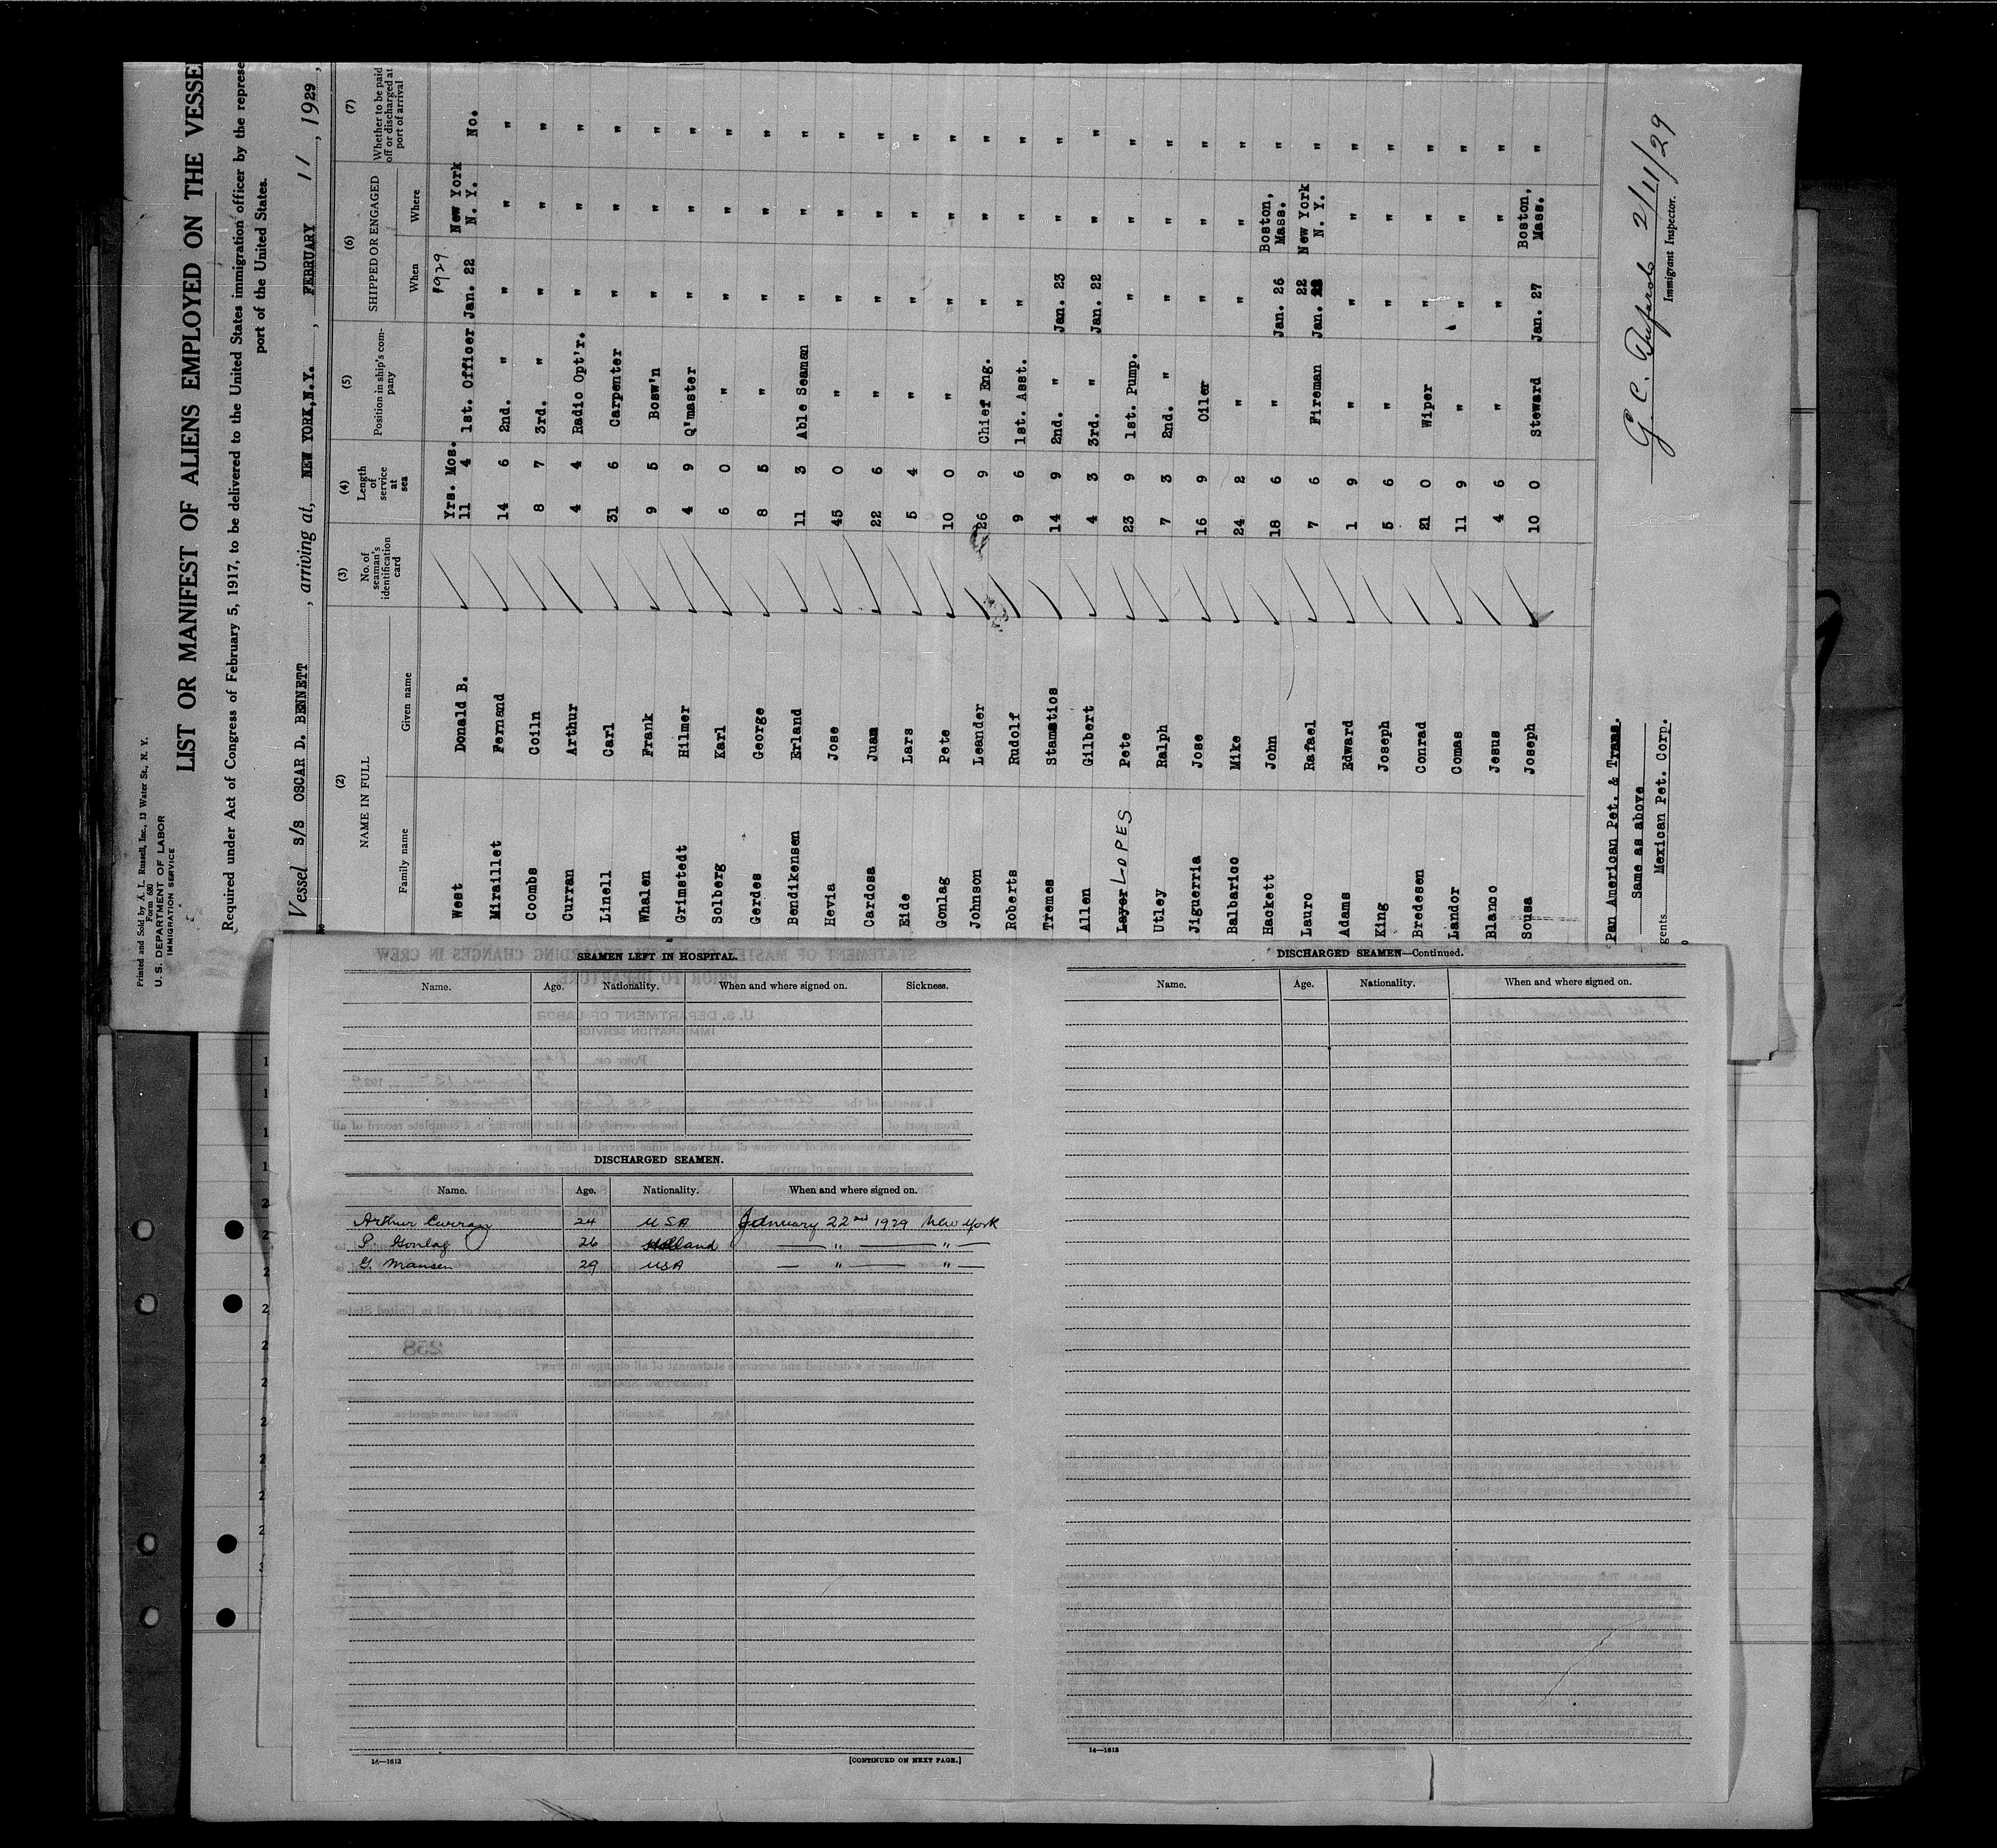 Printed and Sold by A. L. Russell, Inc., 13 Water St., N. Y.
Form 680
U. S. DEPARTMENT OF LABOR
IMMIGRATION SERVICE
LIST OR MANIFEST OF ALIENS EMPLOYED ON THE VESSEL
Required under Act of Congress of February 5, 1917, to be delivered to the United States immigration officer by the represe
port of the United States.
Vessel S/S OSCAR D. BENNETT, arriving at, NEW YORK, N.Y., FEBRUARY 11, 1929,
(2) (3) (4) (5) (6) (7)
NAME IN FULL
Family name Given name
No. of seaman's identification card
Length of service at sea
Position in ship's company
SHIPPED OR ENGAGED
When Where
Whether to be paid off or discharged at port of arrival
Yrs. Mos. 1929
West Donald B. 11 4 1st. Officer Jan. 22 New York N. Y. No.
Miraillet Fernand 14 6 2nd. " " " "
Coombs Coiln 8 7 3rd. " " " "
Curran Arthur 4 4 Radio Opt'r. " " "
Linell Carl 31 6 Carpenter " " "
Whalen Frank 9 5 Bosw'n " " "
Grimstedt Hilmer 4 9 Q'master " " "
Solberg Karl 6 0 " " " "
Gerdes George 8 5 " " " "
Bendikensen Erland 11 3 Able Seaman " " "
Hevia Jose 45 0 " " " "
Cardosa Juan 22 6 " " " "
Eide Lars 5 4 " " " "
Gonlag Pete 10 0 " " " "
Johnson Leander 26 9 Chief Eng. " " "
Roberts Rudolf 9 6 1st. Asst. " " "
Tremes Stamatios 14 9 2nd. " Jan. 23 " "
Allen Gilbert 4 3 3rd. " Jan. 22 " "
Layer LOPES Pete 23 9 1st. Pump. " " "
Utley Ralph 7 3 2nd. " " " "
Jiguerria Jose 16 9 Oiler " " "
Balbarico Mike 24 2 " " " "
Hackett John 18 6 " Jan. 26 Boston, Mass. "
Lauro Rafael 7 6 Fireman Jan. 22 New York N. Y. "
Adams Edward 1 9 " " " "
King Joseph 5 6 " " " "
Bredesen Conrad 21 0 Wiper " " "
Landor Comas 11 9 " " " "
Blanco Jesus 4 6 " " " "
Sousa Joseph 10 0 Steward Jan. 27 Boston, Mass. "
Pan American Pet. & Trans.
Same as above
gents Mexican Pet. Corp.
2/11/29
Immigrant Inspector.
SEAMEN LEFT IN HOSPITAL.
Name. Age. Nationality. When and where signed on. Sickness.
DISCHARGED SEAMEN.
Name. Age. Nationality. When and where signed on.
Arthur Curran 24 USA January 22nd 1929 New York
P. Gonlag 26 Holland " "
G. Mansen 29 USA " "
14—1613
[CONTINUED ON NEXT PAGE.]
DISCHARGED SEAMEN—Continued.
Name. Age. Nationality. When and where signed on.
14—1613